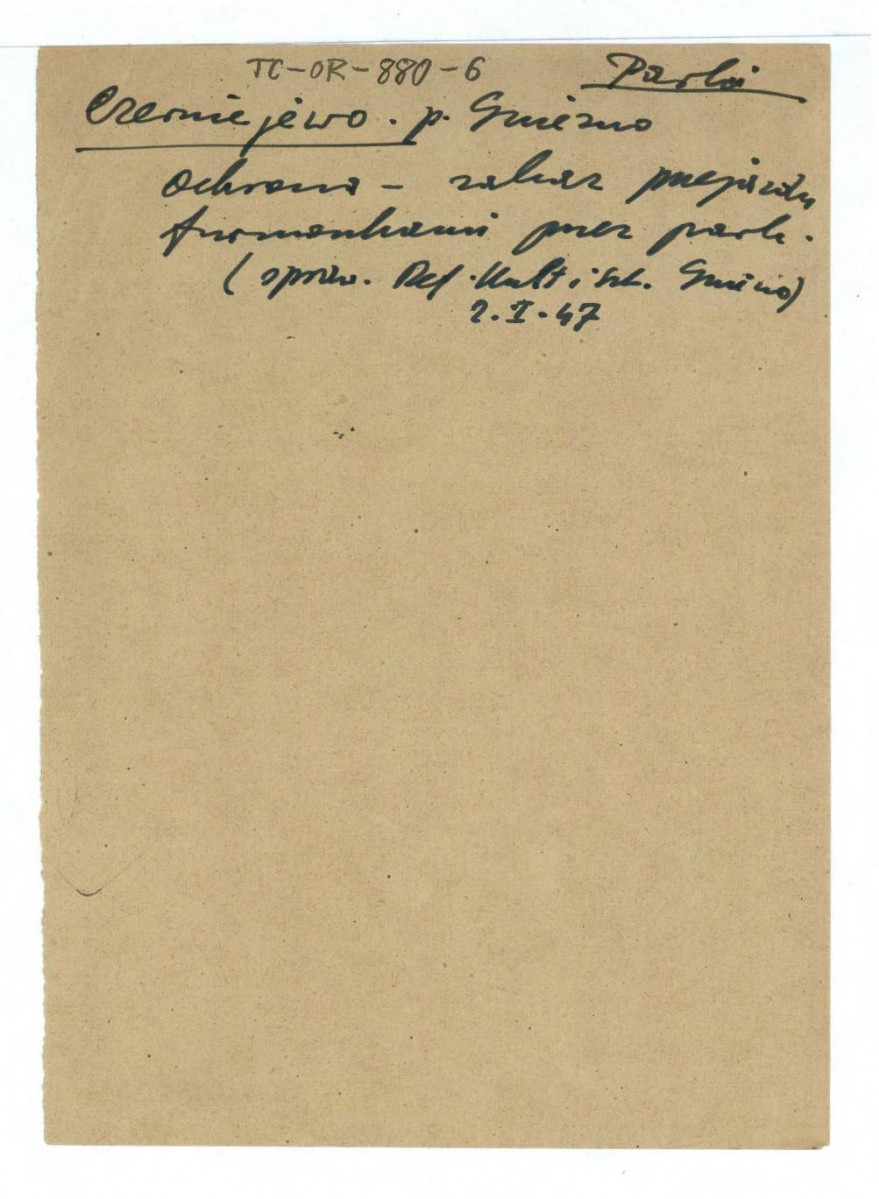 TC-OR-880-6 Parki
Czerniejewo. p. Gniezno
ochrona - zakaz przejazdu
furmankami przez park.
(spraw. Ref. Kult i Szt. Gniezno)
2.I.47